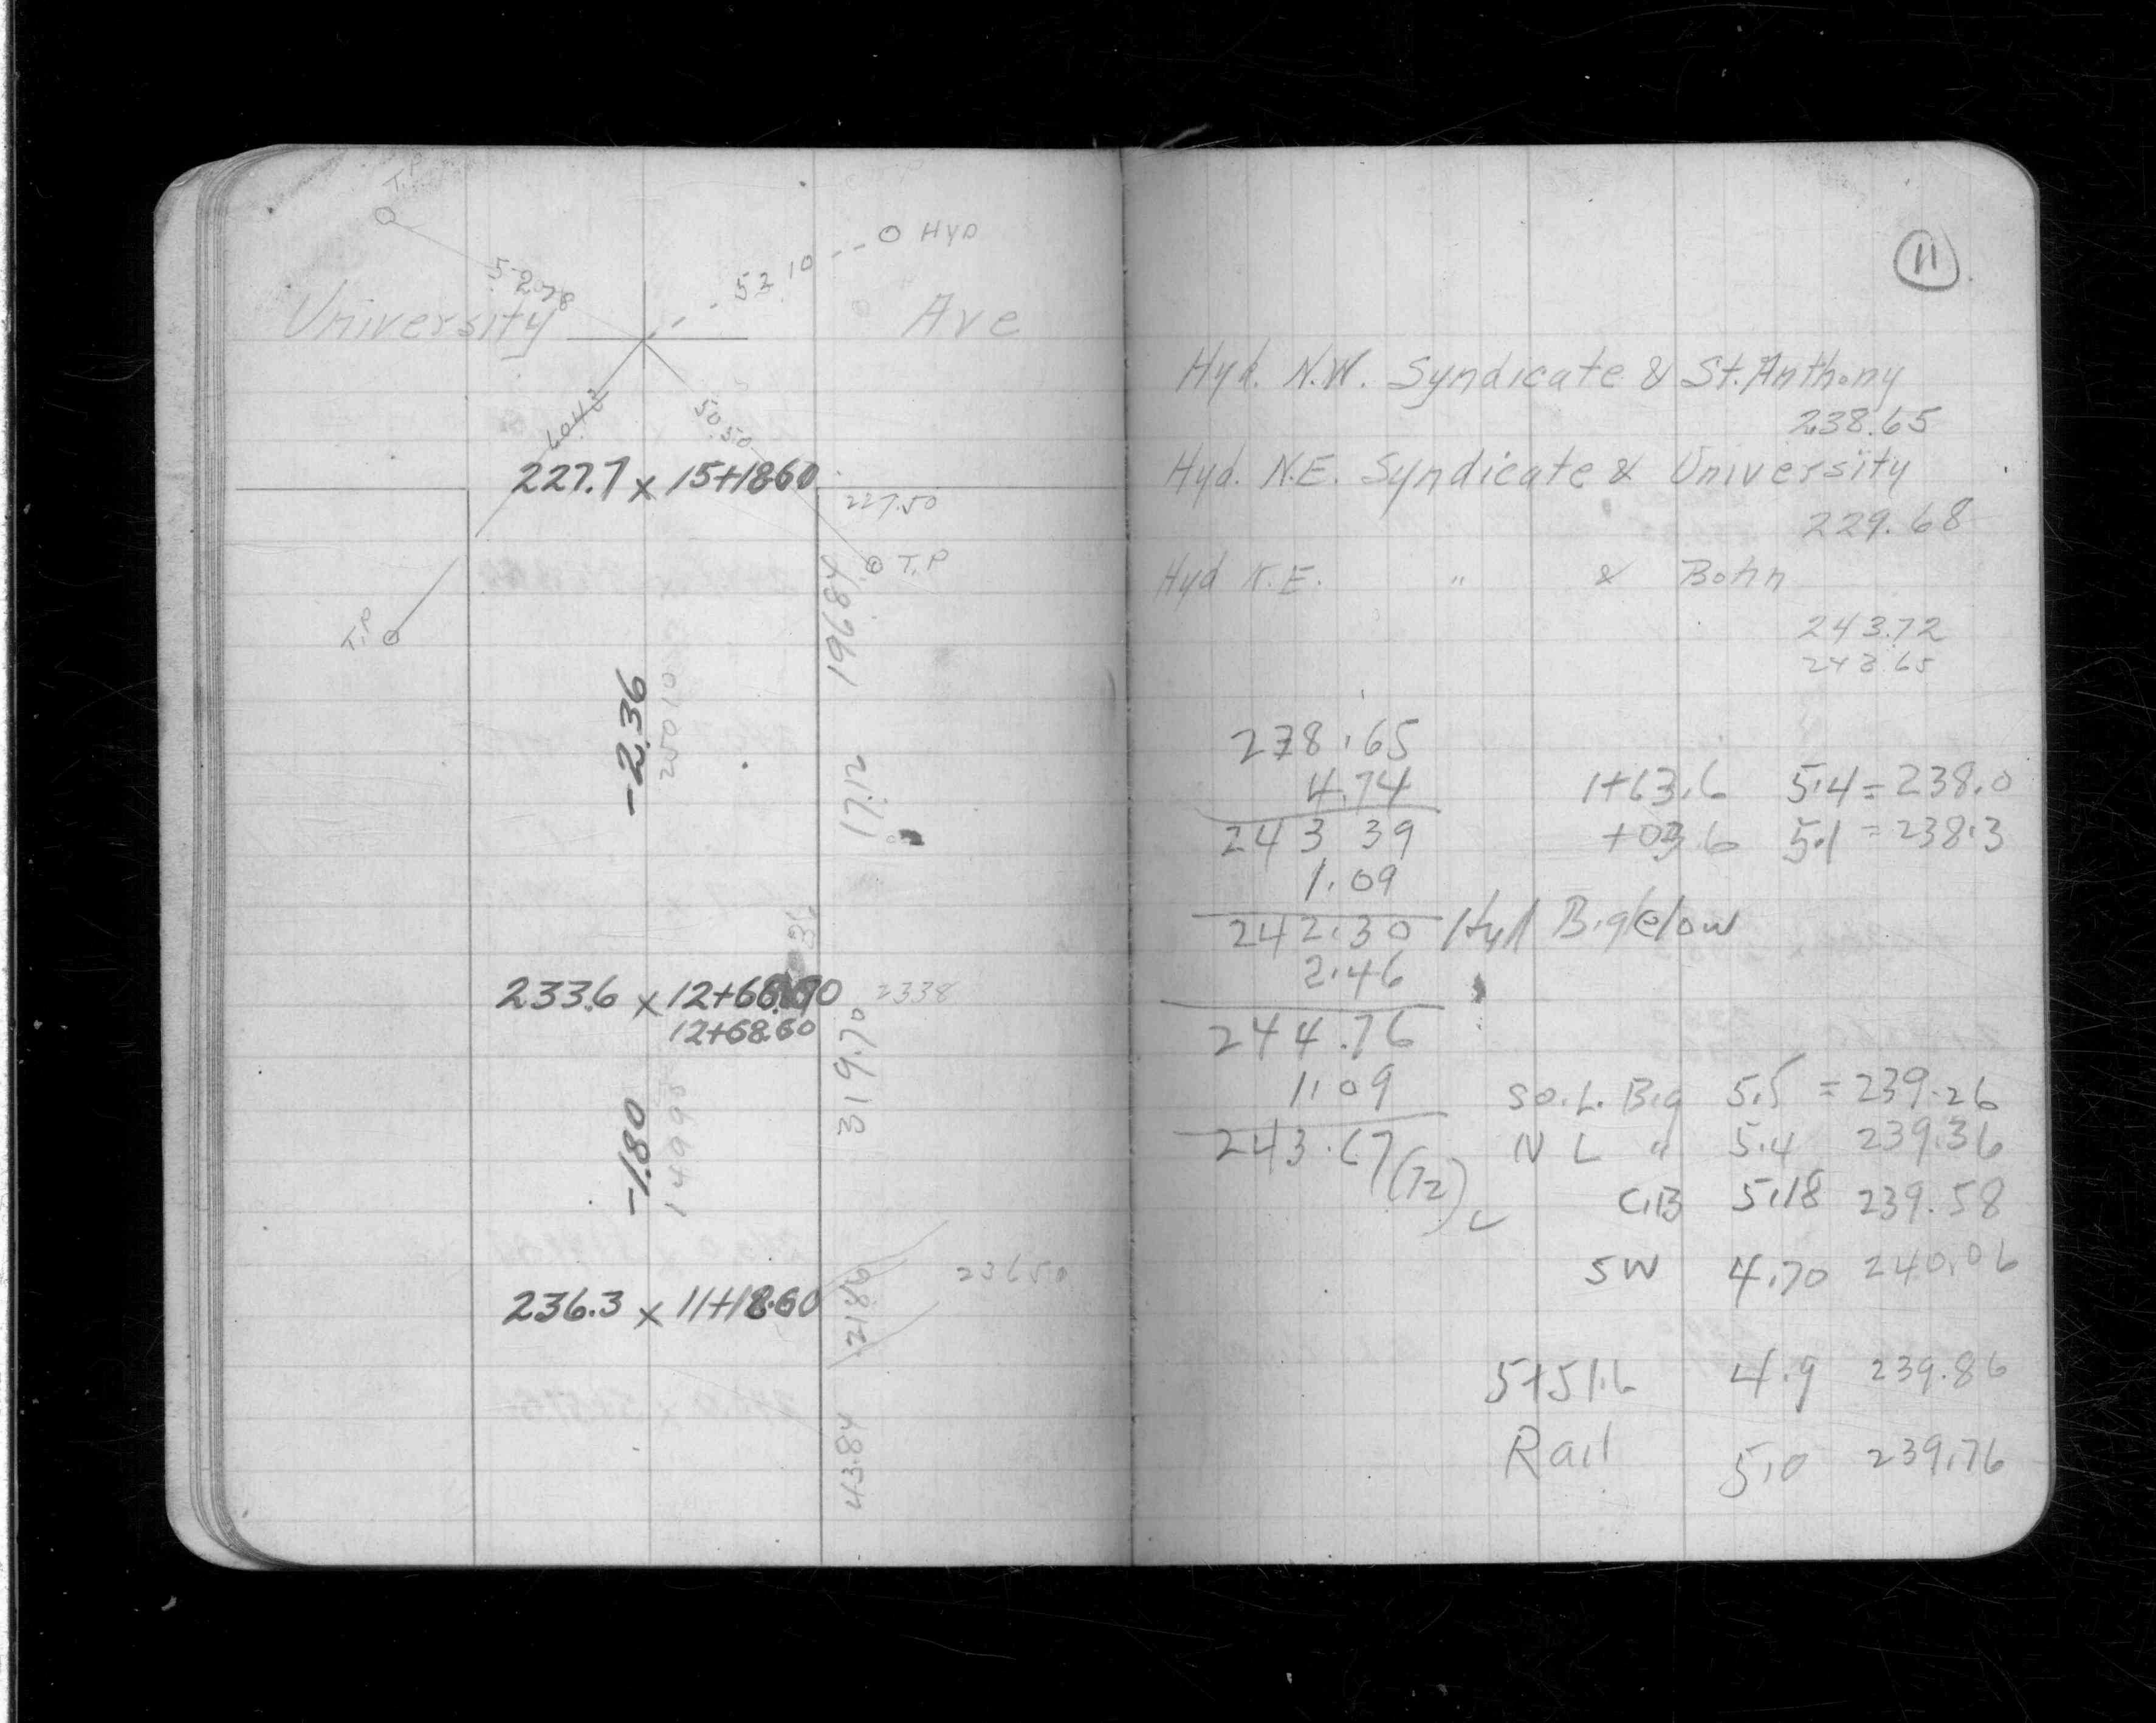 T.P
HYD
52.78
52.10
University Ave
60.42
50.50
227.7 x 15+18.60
227.50
T.P
T.P
196.84
-2.36
250 10
17.12
36
233.6 x 12+68.90
2338
12+68.60
319.70
-1.80
149.90
236.3 x 11+18.60
236.50
21.86
43.84
11
Hyd. N.W. Syndicate & St. Anthony
238.65
Hyd. N.E. Syndicate & University
229.68
Hyd N.E. " & Bohn
243.72
243.65
238.65
4.74
1+63.6 5.4 = 238.0
243 39
+03.6 5.1 = 238.3
1.09
242.30 Hyd Bigelow
2.46
244.76
1.09
So. L. Big 5.5 = 239.26
243.67 (72)
N L " 5.4 239.36
C.B 5.18 239.58
SW 4.70 240.06
5+51.6 4.9 239.86
Rail 5.0 239.76